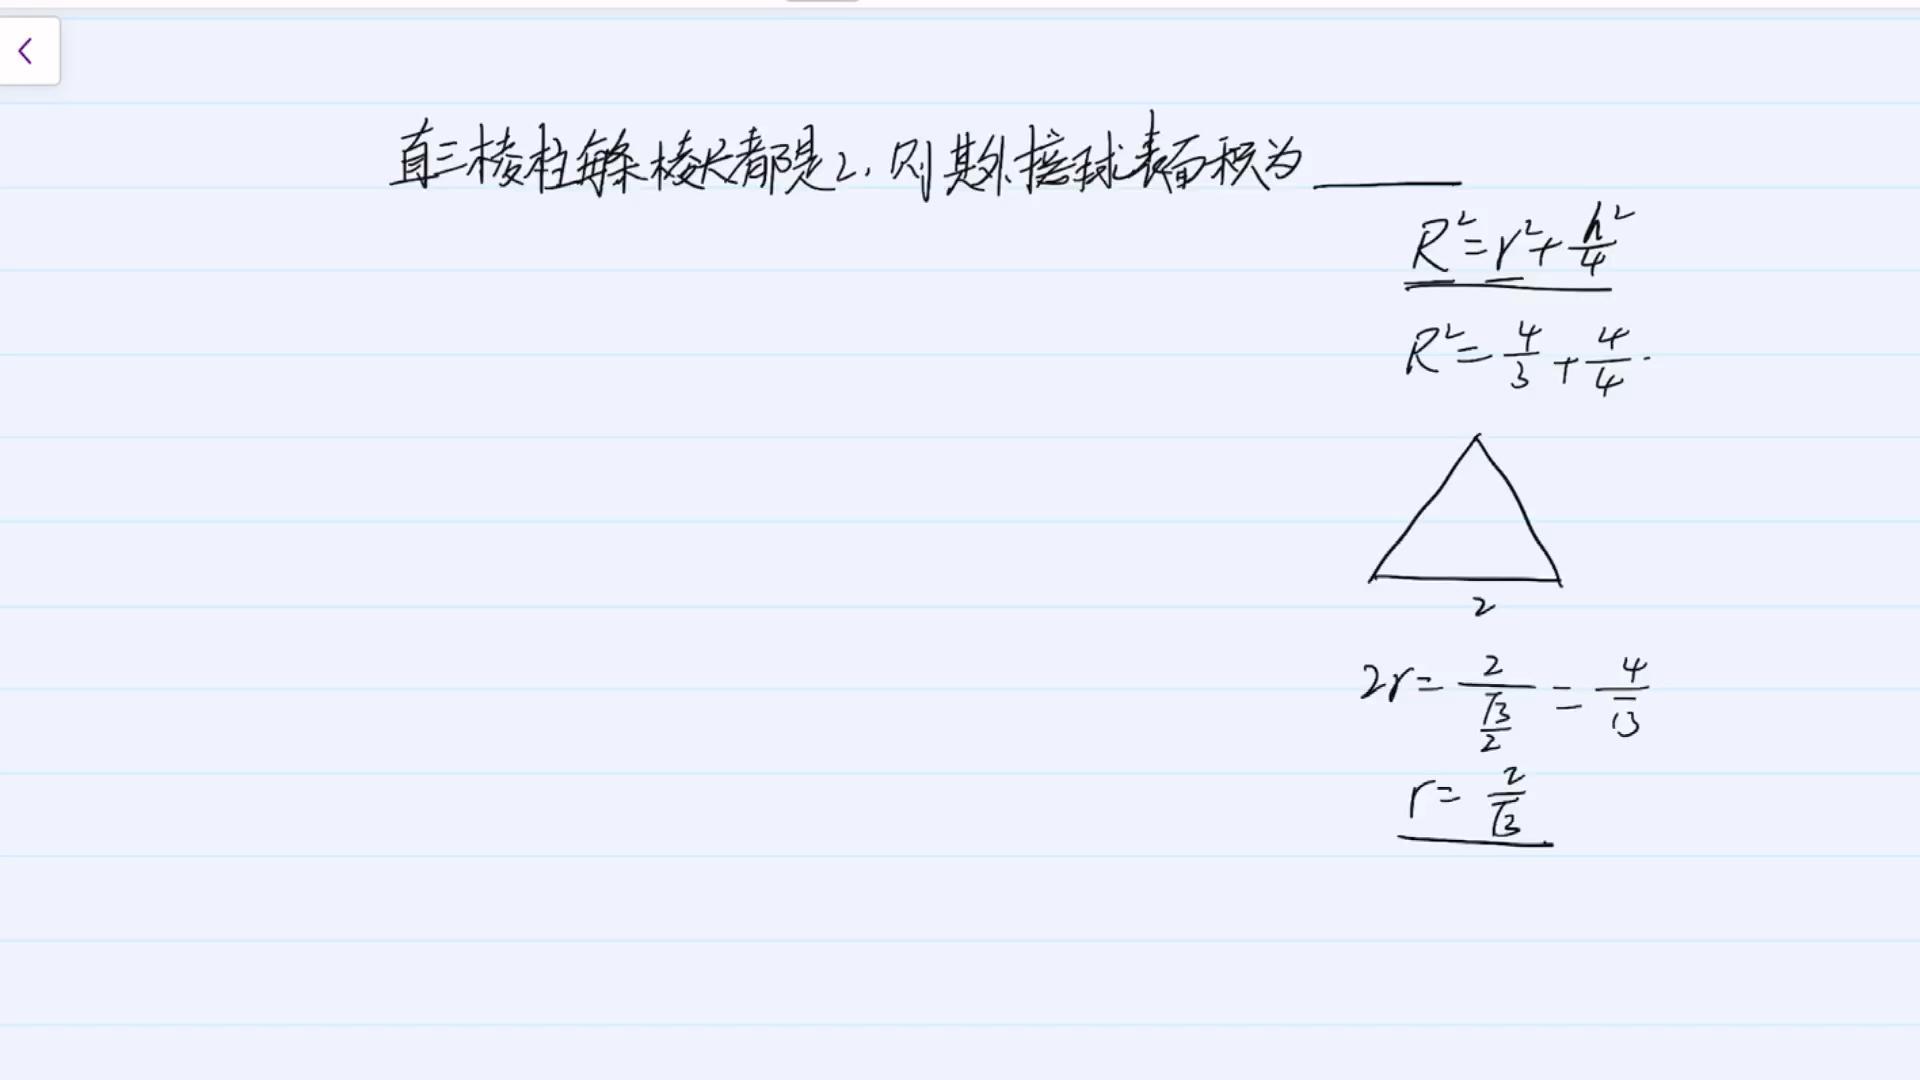 直三棱柱每条棱长都是2,则其外接球表面积为______
R²=r²+h²/4
R²=4/3+4/4.
2
2r=2/(√3/2)=4/√3
r=2/√3